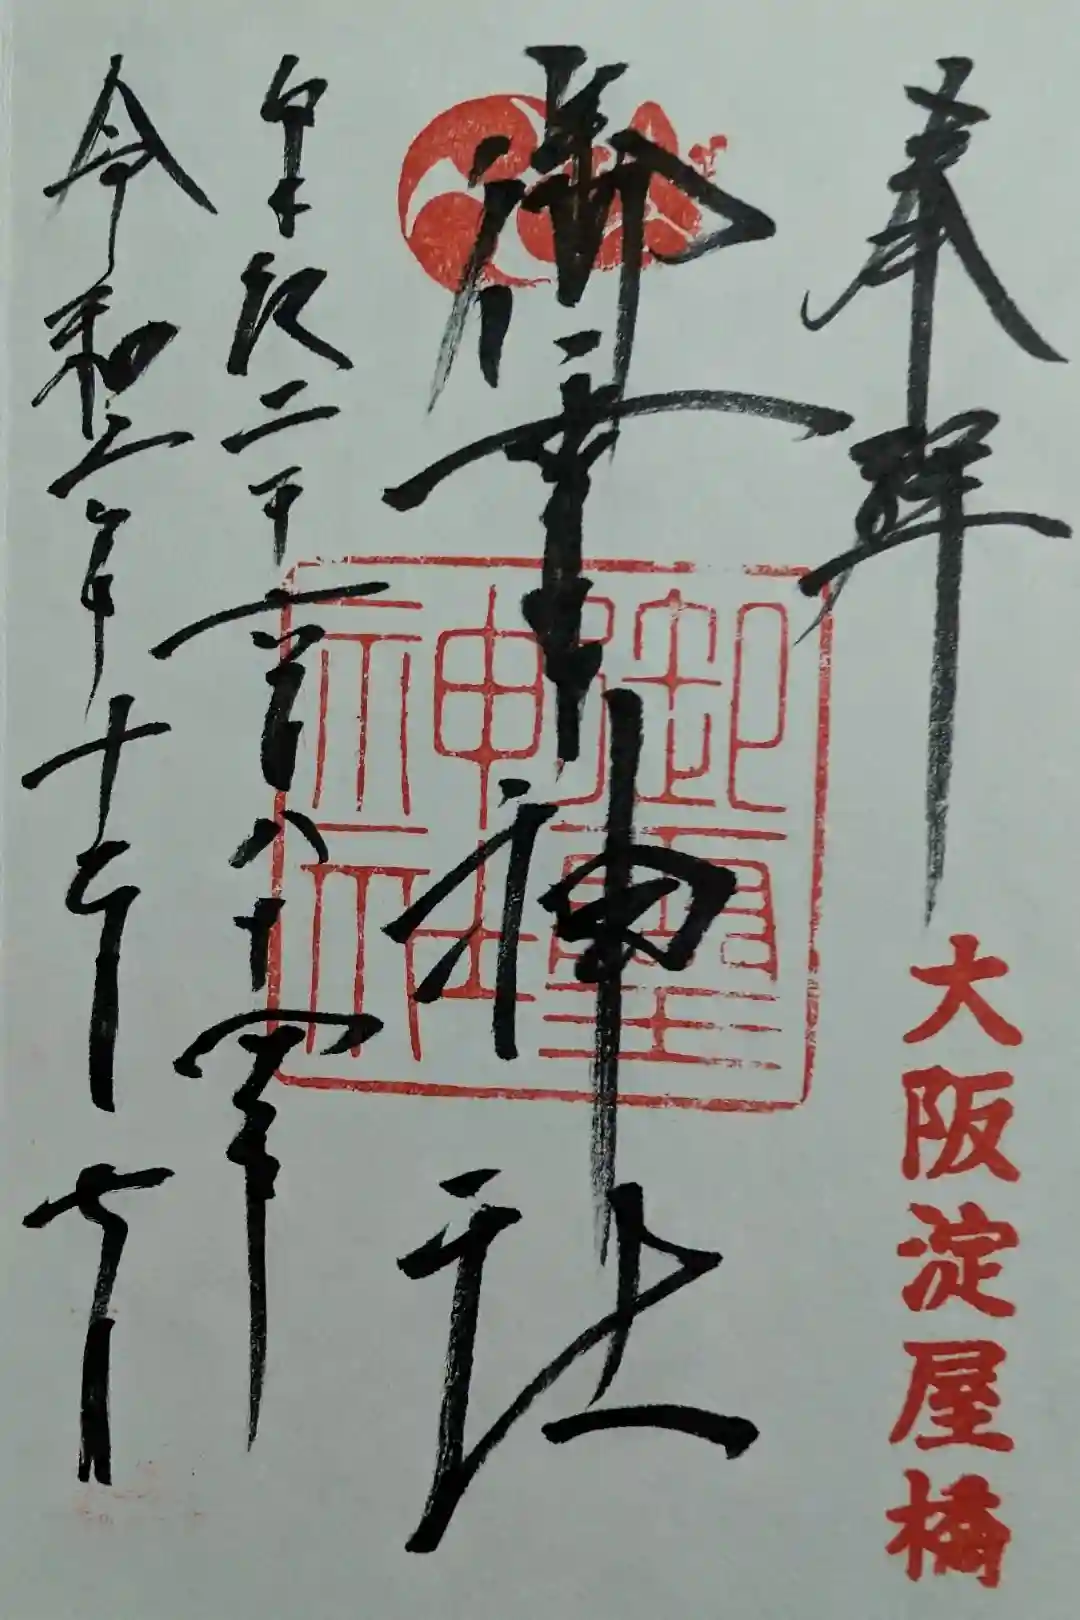 奉拝
大阪淀屋橋
御霊神社
御霊
神社
皇紀二千六百八十四年
令和六年十二月七日